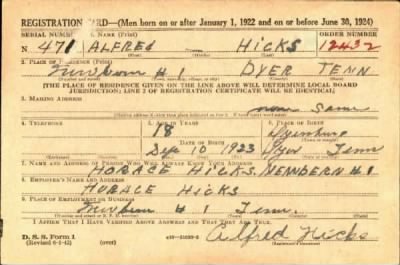 REGISTRATION CARD—(Men born on or after January 1, 1922 and on or before June 30, 1924)
SERIAL NUMBER 1. NAME (Print) ORDER NUMBER
N 471 ALFRED HICKS 12432
2. PLACE OF RESIDENCE (Print)
Newbern # 1 DYER TENN
(THE PLACE OF RESIDENCE GIVEN ON THE LINE ABOVE WILL DETERMINE LOCAL BOARD
JURISDICTION; LINE 2 OF REGISTRATION CERTIFICATE WILL BE IDENTICAL)
3. MAILING ADDRESS
Same
4. TELEPHONE 5. AGE IN YEARS 6. PLACE OF BIRTH
18 Dyersburg
DATE OF BIRTH
Sep 10 1923 Dyer Tenn
7. NAME AND ADDRESS OF PERSON WHO WILL ALWAYS KNOW YOUR ADDRESS
HORACE HICKS. NEWBERN # 1
8. EMPLOYER'S NAME AND ADDRESS
HORACE HICKS
9. PLACE OF EMPLOYMENT OR BUSINESS
Newbern # 1 Tenn.
I AFFIRM THAT I HAVE VERIFIED ABOVE ANSWERS AND THAT THEY ARE TRUE.
D. S. S. Form 1
(Revised 6-9-42) (over) Alfred Hicks